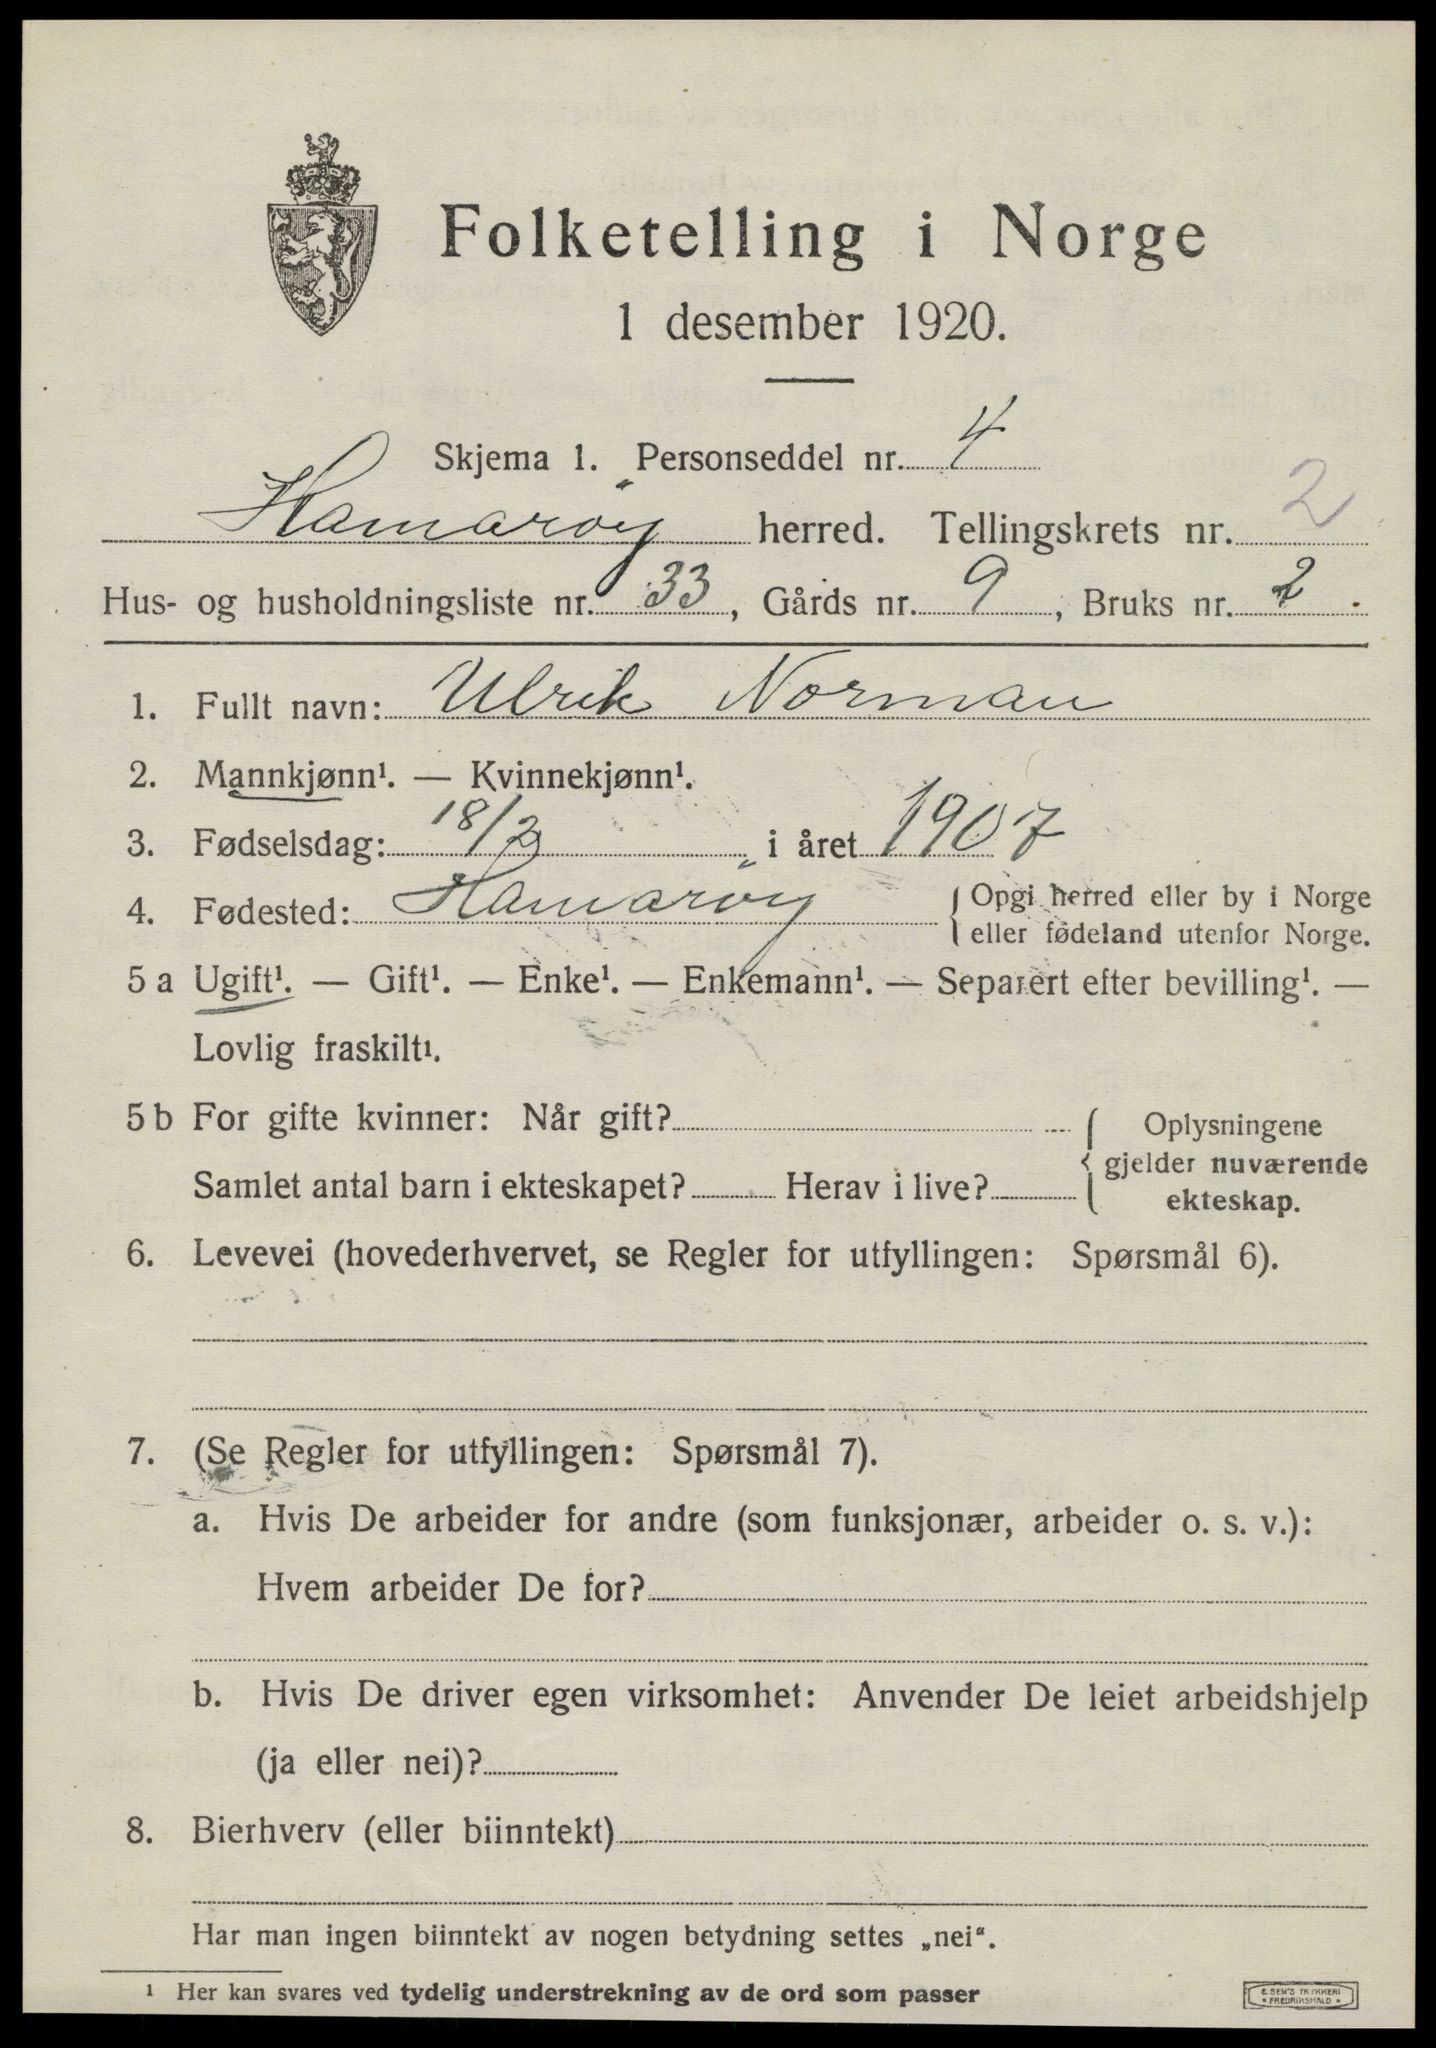 Folketelling i Norge
1 desember 1920.
Skjema 1. Personseddel nr. 4
Hamarøy herred. Tellingskrets nr. 2
Hus- og husholdningsliste nr. 33, Gårds nr. 9, Bruks nr. 2.
1. Fullt navn: Ulrik Norman
2. Mannkjønn¹. — Kvinnekjønn¹.
3. Fødselsdag: 18/2 i året 1907
4. Fødested: Hamarøy { Opgi herred eller by i Norge
eller fødeland utenfor Norge.
5 a Ugift¹. — Gift¹. — Enke¹. — Enkemann¹. — Separert efter bevilling¹. —
Lovlig fraskilt¹.
5 b For gifte kvinner: Når gift? { Oplysningene
gjelder nuværende
Samlet antal barn i ekteskapet? Herav i live? ekteskap.
6. Levevei (hovederhvervet, se Regler for utfyllingen: Spørsmål 6).
7. (Se Regler for utfyllingen: Spørsmål 7).
a. Hvis De arbeider for andre (som funksjonær, arbeider o. s. v.):
Hvem arbeider De for?
b. Hvis De driver egen virksomhet: Anvender De leiet arbeidshjelp
(ja eller nei)?
8. Bierhverv (eller biinntekt)
Har man ingen biinntekt av nogen betydning settes „nei“.
¹ Her kan svares ved tydelig understrekning av de ord som passer
E. SEM'S TRYKKERI
• FREDRIKSHALD •